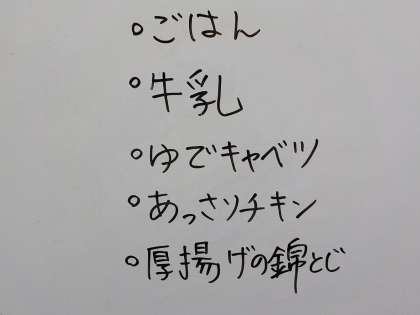 ○ごはん
○牛乳
○ゆでキャベツ
○あっさリチキン
○厚揚げの錦とじ